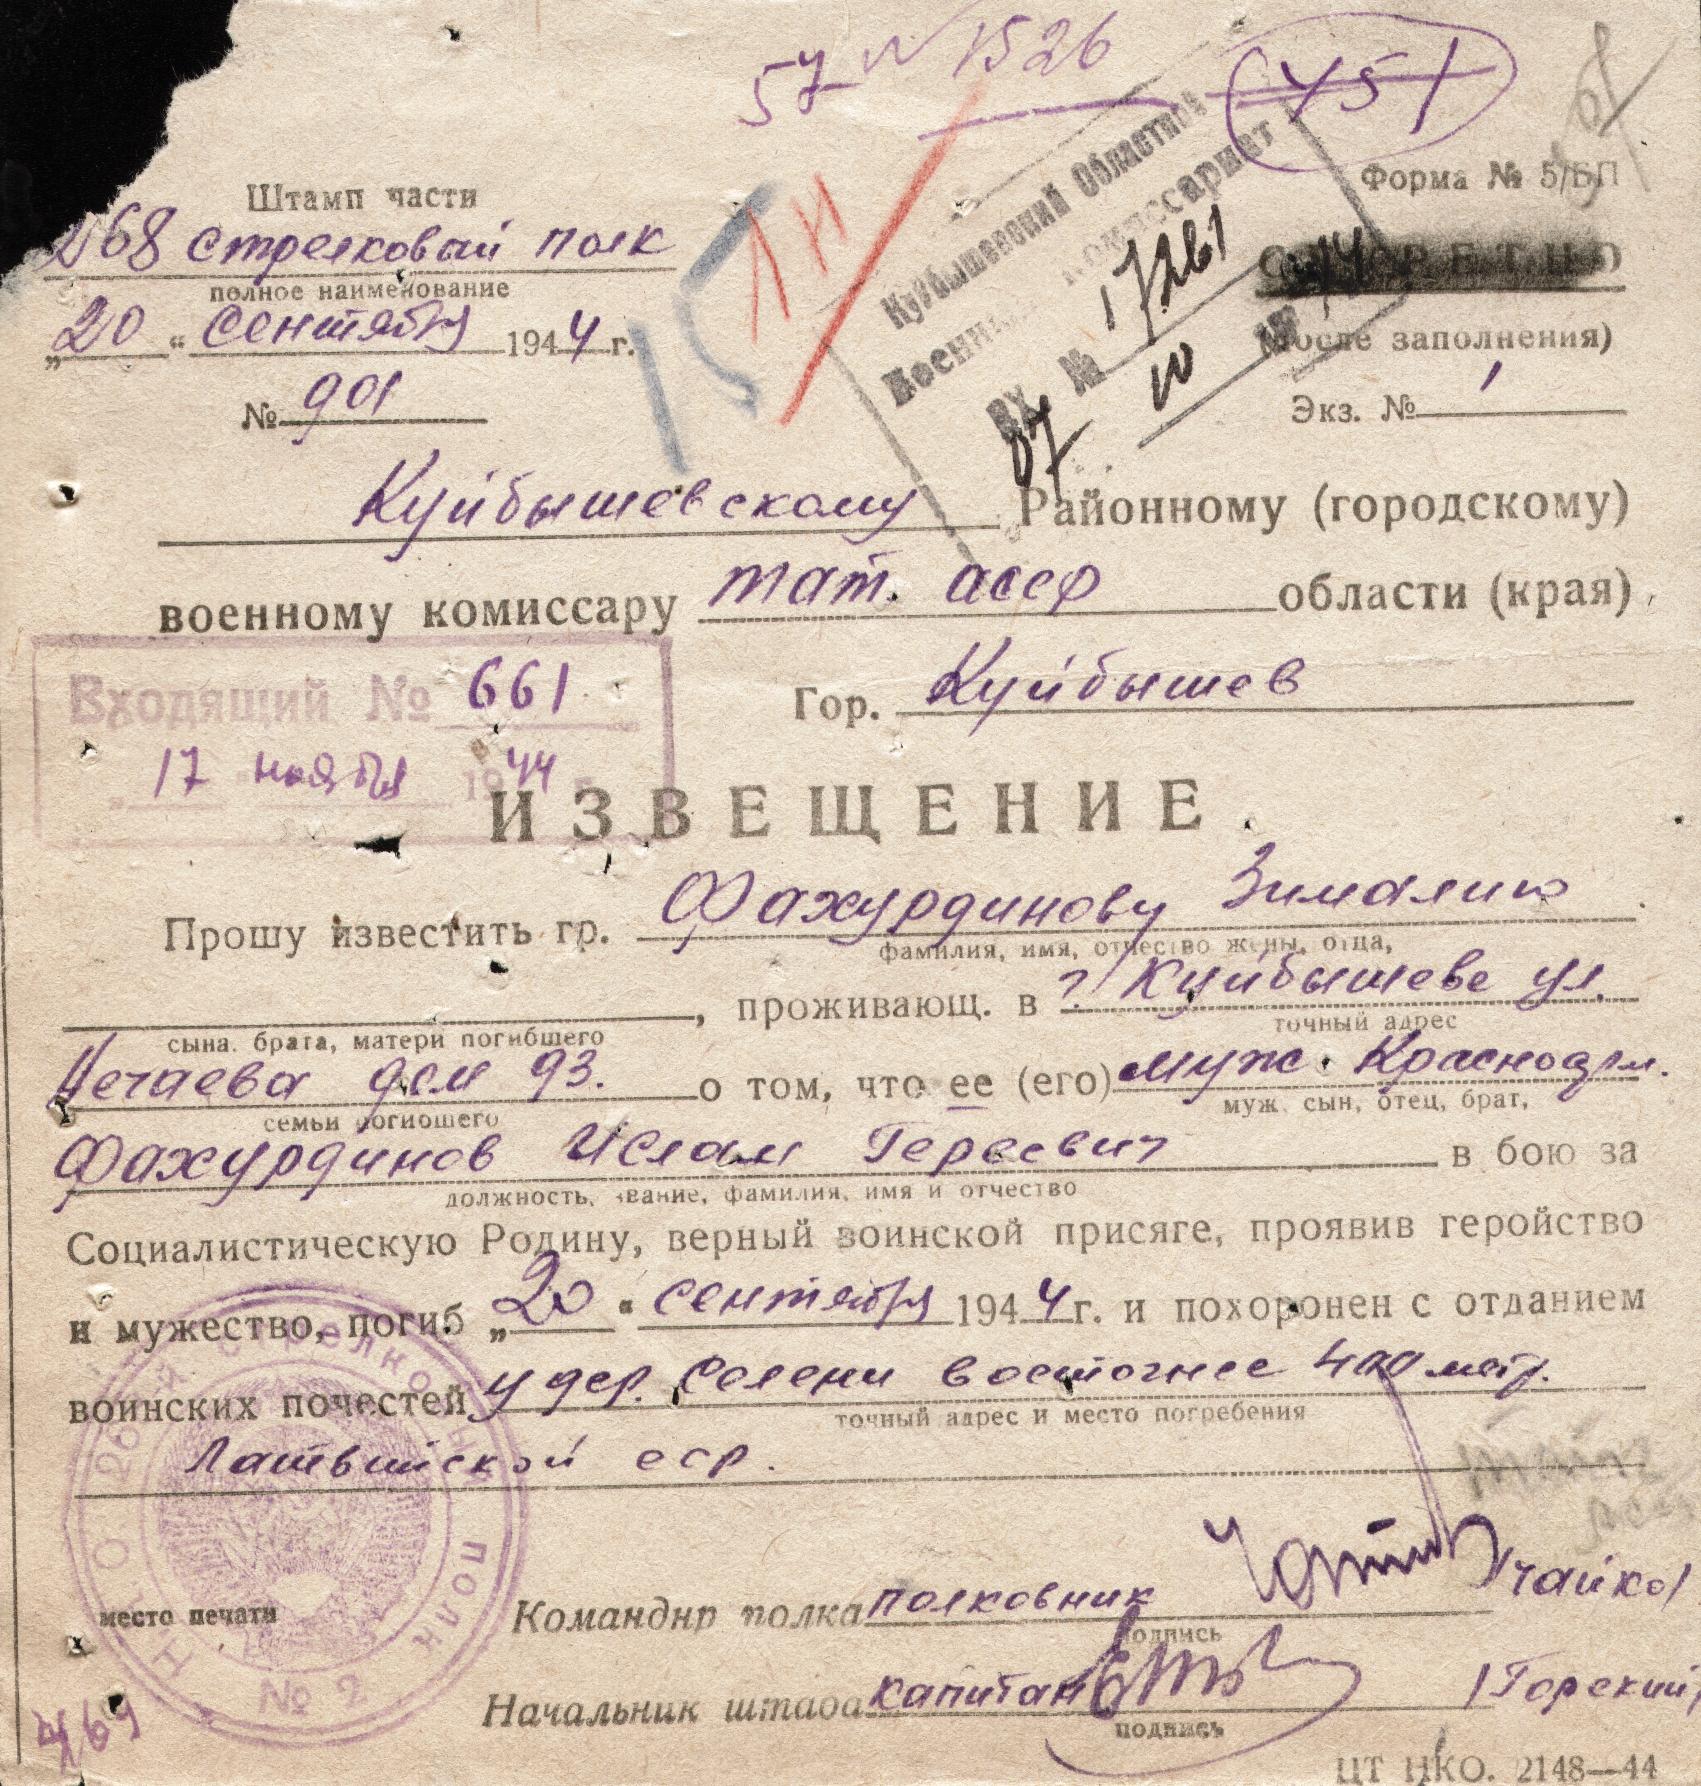 57 N 1526
451
Форма № 5/БП
Штамп части
268 стрелковый полк
полное наименование
„20“ сентября 1944 г.
№ 901
15
ЛН
Куйбышевский Областной
Военный комиссариат
ВХ. № 17261
07 10 1944
СЕКРЕТНО
(после заполнения)
Экз. № 1
Куйбышевскому Районному (городскому)
военному комиссару тат. асср области (края)
Входящий № 661
17 ноября 1944
Гор. Куйбышев
ИЗВЕЩЕНИЕ
Прошу известить гр. Фахурдинову Зималию
фамилия, имя, отчество жены, отца,
, проживающ. в г. Куйбышеве ул.
сына, брата, матери погибшего точный адрес
Нечаева дом 93. о том, что ее (его) муж. Красноарм.
семьи погибшего муж, сын, отец, брат,
Фахурдинов Ислам Гереевич в бою за
должность, звание, фамилия, имя и отчество
Социалистическую Родину, верный воинской присяге, проявив геройство
и мужество, погиб „20“ сентября 1944 г. и похоронен с отданием
воинских почестей у дер. Селени восточнее 400 метр.
точный адрес и место погребения
Латвийской сср.
268 стрелковый полк
НКО
№ 2
место печати
Командир полка полковник /Чайко/
подпись
Начальник штаба капитан /Горский/
подпись
469
ЦТ НКО. 2148—44